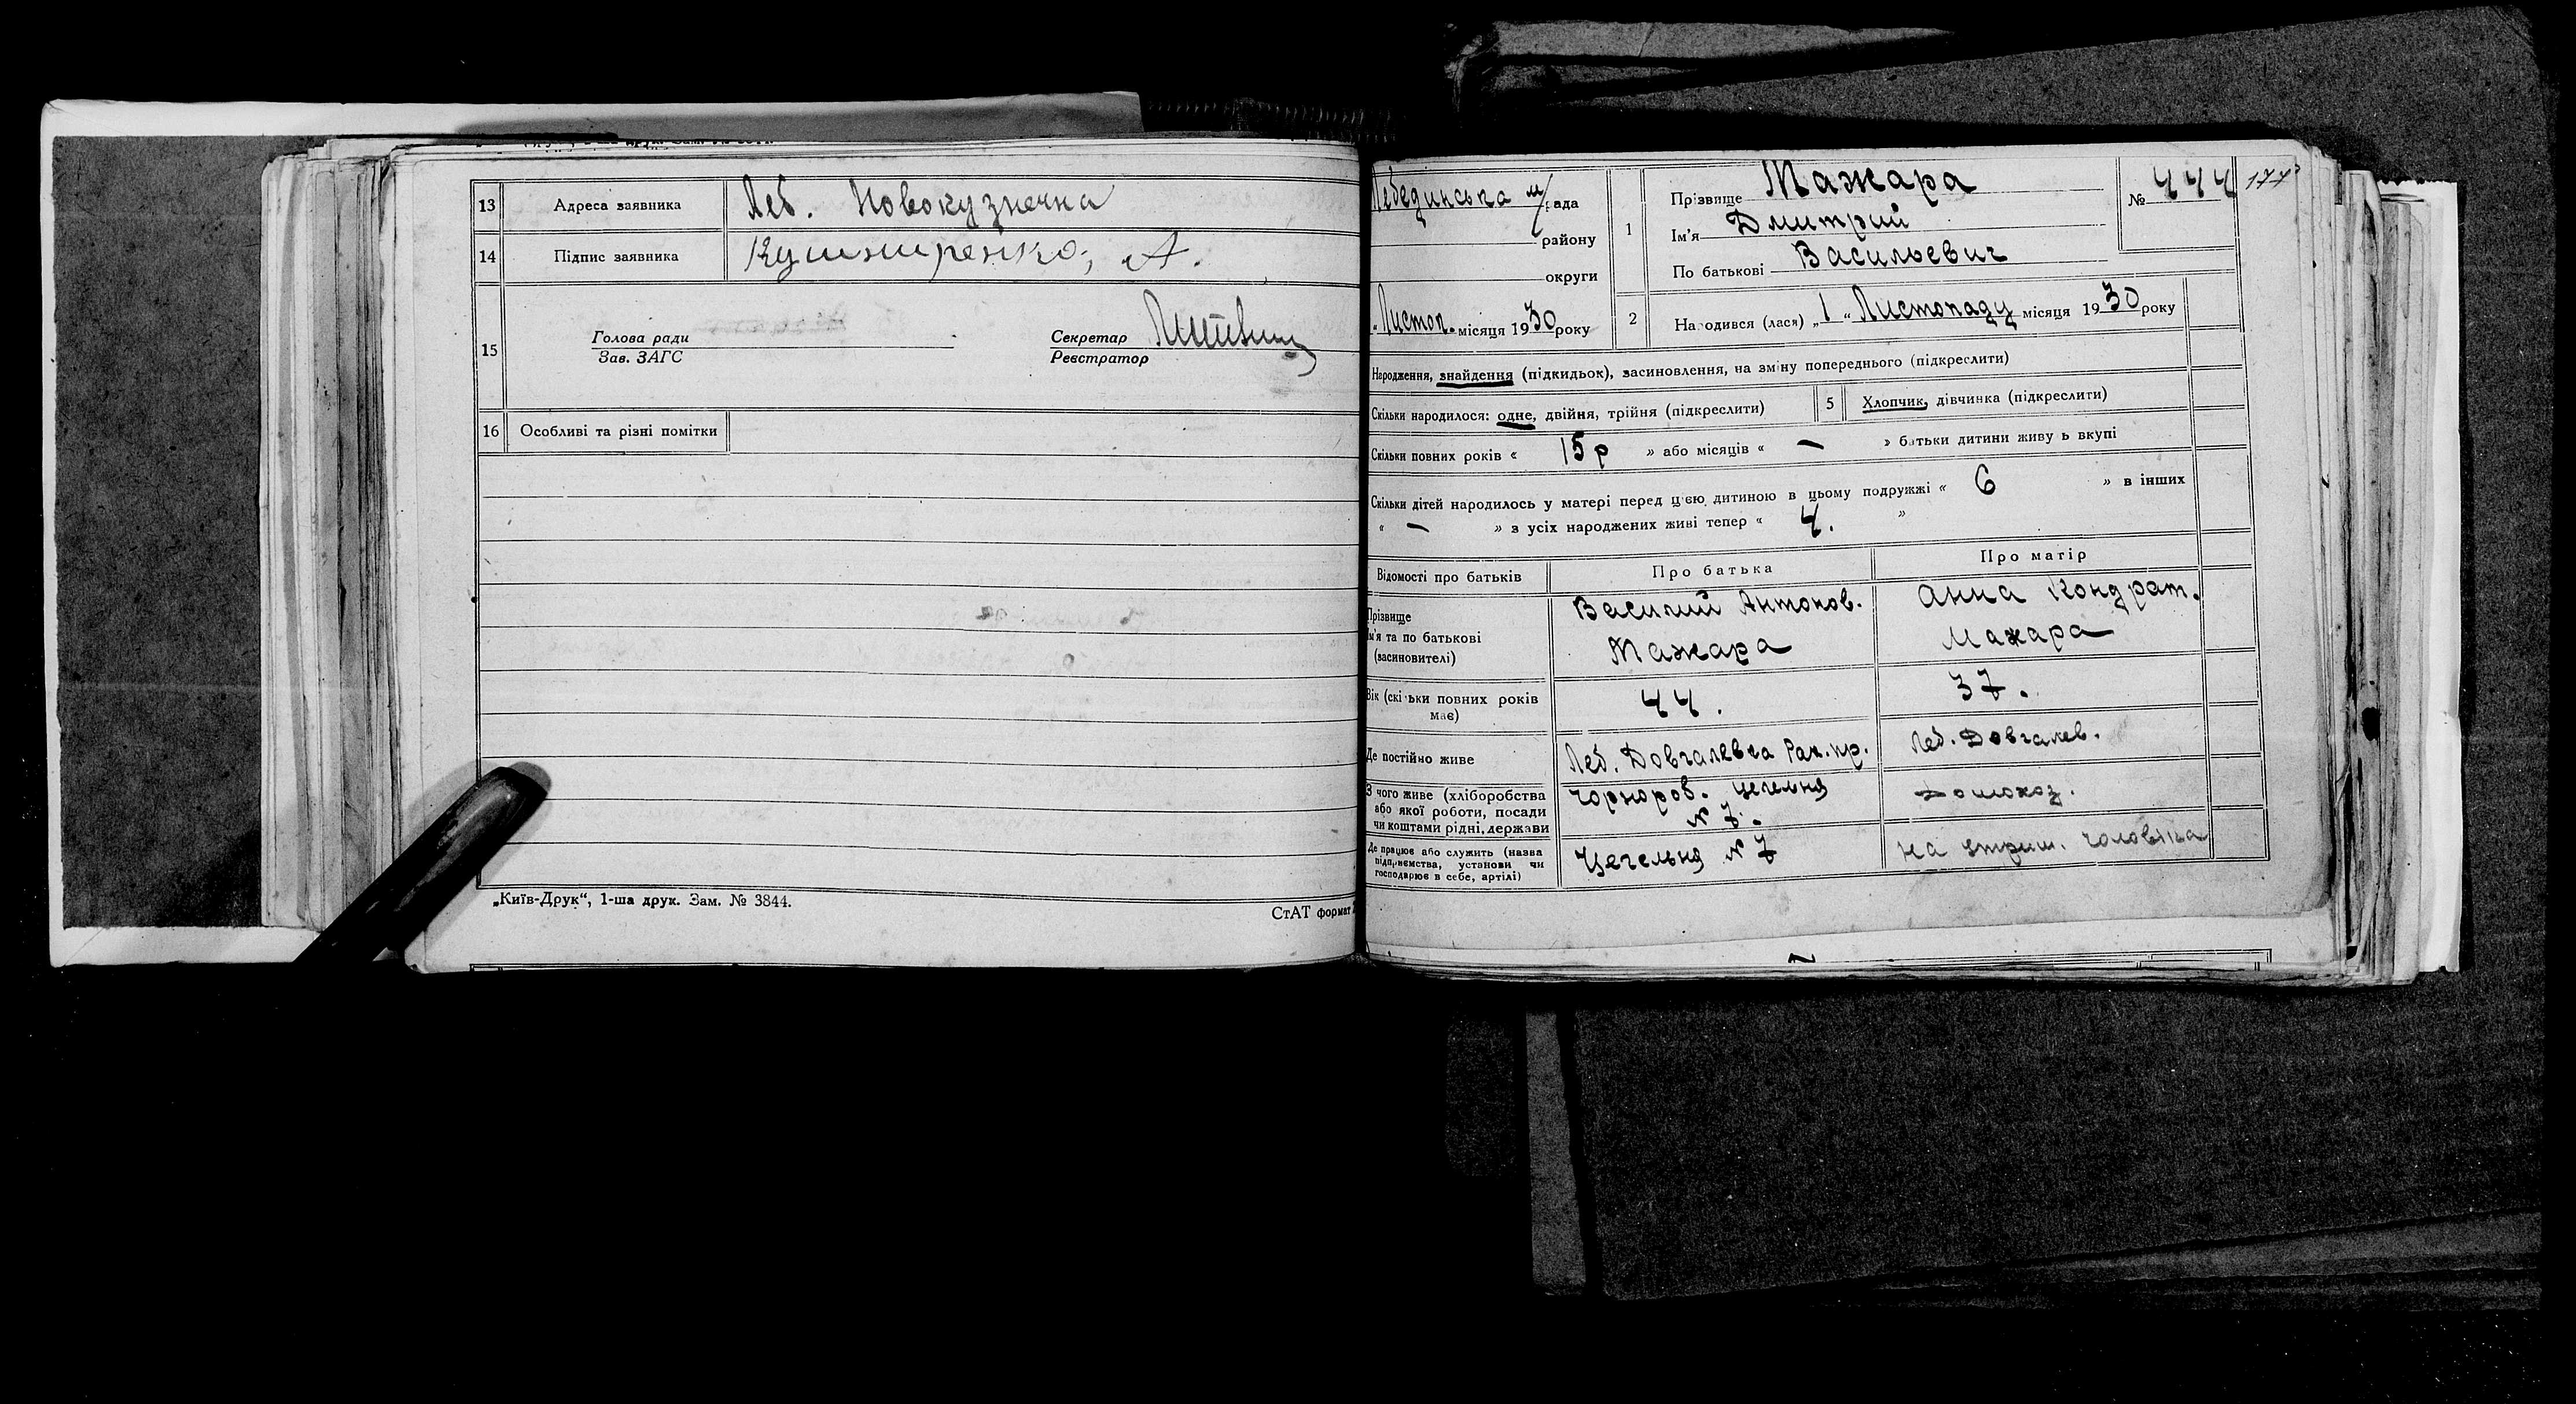 13 Адреса заявника Леб. Новокузнечна
14 Підпис заявника Кушниренко, А.
15
Голова ради
Зав. ЗАГС
Секретар
Реєстратор
16 Особливі та різні помітки
„Київ-Друк“, 1-ша друк. Зам. № 3844.
СтАТ формат
Лебединська м/рада
району
округи
„Листоп. місяця 1930 року
1 Прізвище Мажара
Ім'я Дмитрий
По батькові Васильевич
№ 444
177
2 Народився (лася) „1“ Листопаду місяця 1930 року
Народження, знайдення (підкидьок), засиновлення, на зміну попереднього (підкреслити)
Скільки народилося: одне, двійня, трійня (підкреслити) 5 Хлопчик, дівчинка (підкреслити)
Скільки повних років « 15 р » або місяців « — » батьки дитини живуть вкупі
Скільки дітей народилось у матері перед цією дитиною в цьому подружжі « 6 » в інших
« — » з усіх народжених живі тепер « 4. »
Відомості про батьків Про батька Про матір
Прізвище
Ім'я та по батькові
(засиновителі)
Василий Антонов.
Мажара
Анна Кондрат.
Мажара
Вік (скільки повних років
має)
44. 37.
Де постійно живе Леб. Довгалевка Рак. пр. Леб. Довгалев.
З чого живе (хліборобства
або якої роботи, посади
чи коштами рідні, держави
Чорнороб. цегельня
№ 7.
Домохоз.
Де працює або служить (назва
підприємства, установи чи
господарює в себе, артілі)
Цегельня № 7
на утрим. чоловіка